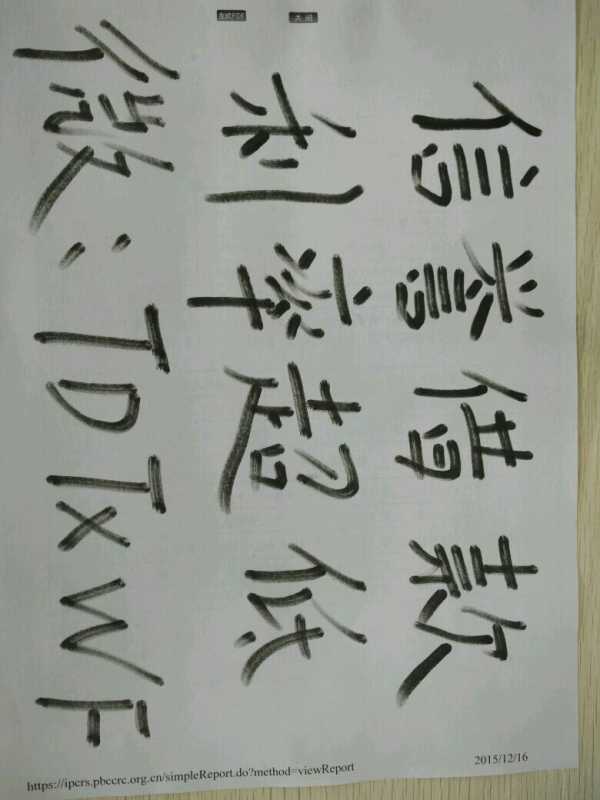 信誉借款
利率超低
微:TDTXWF
https://ipcrs.pbccrc.org.cn/simpleReport.do?method=viewReport
2015/12/16
关 闭